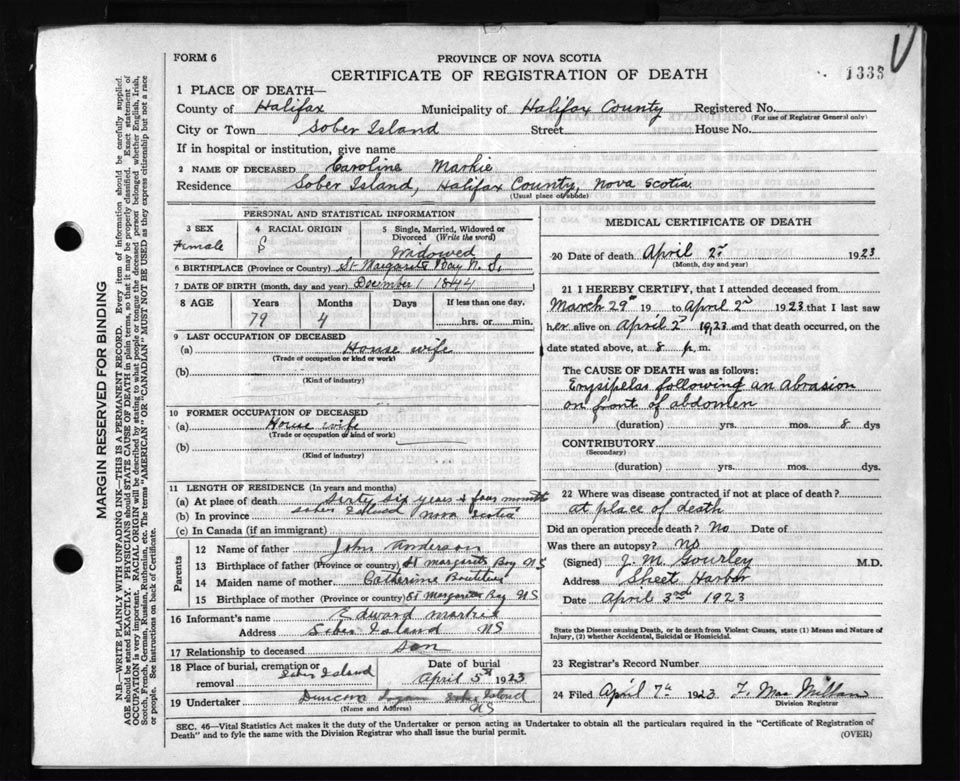 FORM 6
PROVINCE OF NOVA SCOTIA
CERTIFICATE OF REGISTRATION OF DEATH
1338
V
1 PLACE OF DEATH—
County of Halifax Municipality of Halifax County Registered No.
(For use of Registrar General only)
City or Town Sober Island Street House No.
If in hospital or institution, give name
2 NAME OF DECEASED Caroline Markie
Residence Sober Island, Halifax County, Nova Scotia
(Usual place of abode)
PERSONAL AND STATISTICAL INFORMATION
3 SEX
Female
4 RACIAL ORIGIN
5 Single, Married, Widowed or Divorced (Write the word)
Widowed
6 BIRTHPLACE (Province or Country) St Margarets Bay N.S.
7 DATE OF BIRTH (month, day and year) December 1 1844
8 AGE Years Months Days If less than one day.
79 4 hrs. or min.
9 LAST OCCUPATION OF DECEASED
(a) House wife
(Trade of occupation or kind or work)
(b)
(Kind of industry)
10 FORMER OCCUPATION OF DECEASED
(a) House wife
(Trade of occupation or kind of work)
(b)
(Kind of industry)
11 LENGTH OF RESIDENCE (In years and months)
(a) At place of death Sixty six years & four month
(b) In province Sober Island Nova Scotia
(c) In Canada (if an immigrant)
Parents
12 Name of father John Anderson
13 Birthplace of father (Province or country) St margarets Bay NS
14 Maiden name of mother Catherine Boutilier
15 Birthplace of mother (Province or country) St Margarets Bay NS
16 Informant's name Edward Markie
Address Sober Island NS
17 Relationship to deceased Son
18 Place of burial, cremation or removal Sober Island
Date of burial
April 5th 1923
19 Undertaker Duncan Sober Island NS
(Name and Address)
MEDICAL CERTIFICATE OF DEATH
20 Date of death April 2d 1923
(Month, day and year)
21 I HEREBY CERTIFY, that I attended deceased from
March 29th 19 to April 2d 1923 that I last saw
her alive on April 2d 1923 and that death occurred, on the
date stated above, at 8 p. m.
The CAUSE OF DEATH was as follows:
Erysipelas following an Abrasion
on front of abdomen
(duration) yrs. mos. 8 dys
CONTRIBUTORY
(Secondary)
(duration) yrs. mos. dys.
22 Where was disease contracted if not at place of death?
at place of death
Did an operation precede death? No Date of
Was there an autopsy? No
(Signed) J. M. Gourley M.D.
Address Sheet Harbor
Date April 3rd 1923
State the Disease causing Death, or in death from Violent Causes, state (1) Means and Nature of
Injury, (2) whether Accidental, Suicidal or Homicidal.
23 Registrar's Record Number
24 Filed April 7th 1923 F. MacMillan
Division Registrar
SEC. 46—Vital Statistics Act makes it the duty of the Undertaker or person acting as Undertaker to obtain all the particulars required in the "Certificate of Registration of
Death" and to fyle the same with the Division Registrar who shall issue the burial permit.
(OVER)
MARGIN RESERVED FOR BINDING
N.B.—WRITE PLAINLY WITH UNFADING INK—THIS IS A PERMANENT RECORD. Every item of information should be carefully supplied.
AGE should be stated EXACTLY. PHYSICIANS should STATE CAUSE OF DEATH in plain terms, so that it may be properly classified. Exact statement of
OCCUPATION is very important. RACIAL ORIGIN will be described by stating to what people or tongue the deceased person belonged whether English, Irish,
Scotch, French, German, Russian, Ruthenian, etc. The terms "AMERICAN" OR "CANADIAN" MUST NOT BE USED as they express citizenship but not a race
or people. See instructions on back of Certificate.